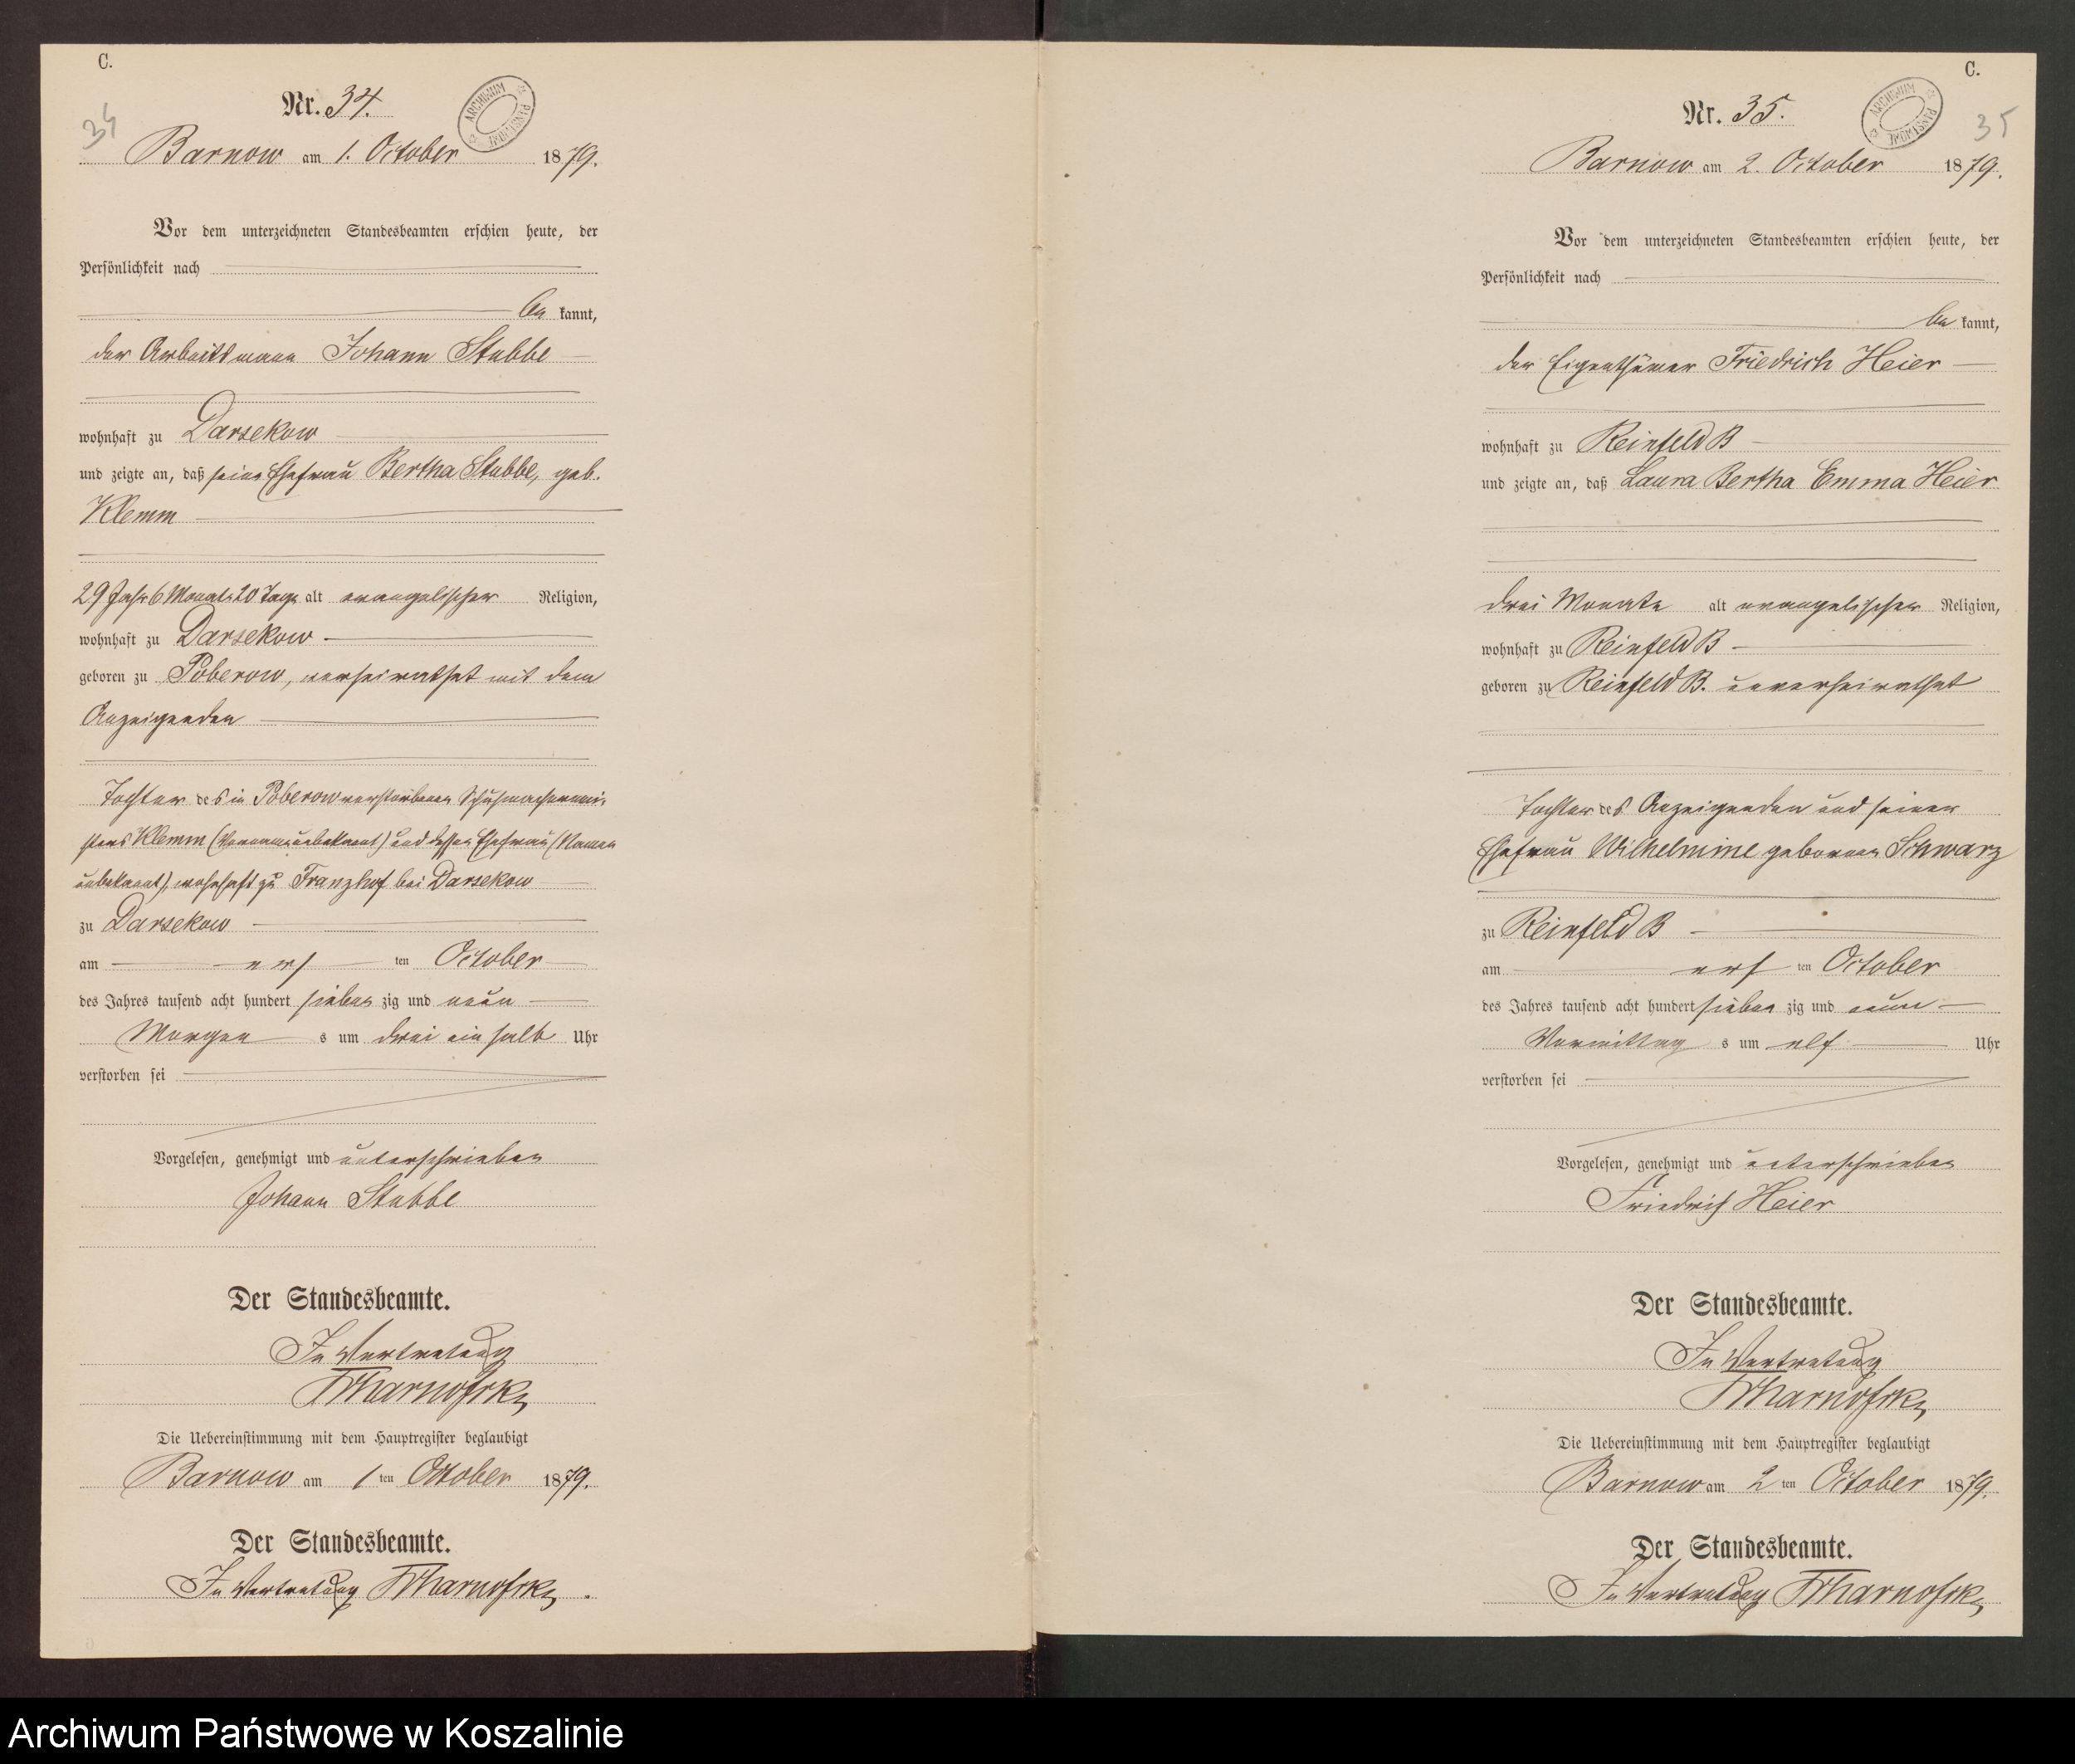 C.
Nr. 34.
34
ARCHIWUM PAŃSTWOW
Barnow am 1. October 1879.
Vor dem unterzeichneten Standesbeamten erschien heute, der
Persönlichkeit nach
be kannt,
der Arbeitsmann Johann Stubbe
wohnhaft zu Darsekow
und zeigte an, daß seine Ehefrau Bertha Stubbe, geb.
Klemm
29 Jahr 6 Monate 20 Tage alt evangelischer Religion,
wohnhaft zu Darsekow
geboren zu Poberow, verheirathet mit dem
Anzeigenden
Tochter des in Poberow verstorbenen Schuhmachermei-
sters Klemm (Vorname unbekannt) und dessen Ehefrau (Namen
unbekannt), wohnhaft zu Franzhof bei Darsekow
zu Darsekow
am ers ten October
des Jahres tausend acht hundert sieben zig und neun
Morgen s um drei ein halb Uhr
verstorben sei
Vorgelesen, genehmigt und unterschrieben
Johann Stubbe
Der Standesbeamte.
In Vertretung
Die Uebereinstimmung mit dem Hauptregister beglaubigt
Barnow am 1 ten October 1879.
Der Standesbeamte.
In Vertretung
C.
Nr. 35.
35
ARCHIWUM PAŃSTWOW
Barnow am 2. October 1879.
Vor dem unterzeichneten Standesbeamten erschien heute, der
Persönlichkeit nach
be kannt,
der Eigenthümer Friedrich Heier
wohnhaft zu Reinfeld B
und zeigte an, daß Laura Bertha Emma Heier
drei Monate alt evangelischer Religion,
wohnhaft zu Reinfeld B
geboren zu Reinfeld B. unverheirathet
Tochter des Anzeigenden und seiner
Ehefrau Wilhelmine geborenen Schwarz
zu Reinfeld B
am ers ten October
des Jahres tausend acht hundert sieben zig und neun
Vormittag s um elf Uhr
verstorben sei
Vorgelesen, genehmigt und unterschrieben
Friedrich Heier
Der Standesbeamte.
In Vertretung
Die Uebereinstimmung mit dem Hauptregister beglaubigt
Barnow am 2 ten October 1879.
Der Standesbeamte.
In Vertretung
Archiwum Państwowe w Koszalinie